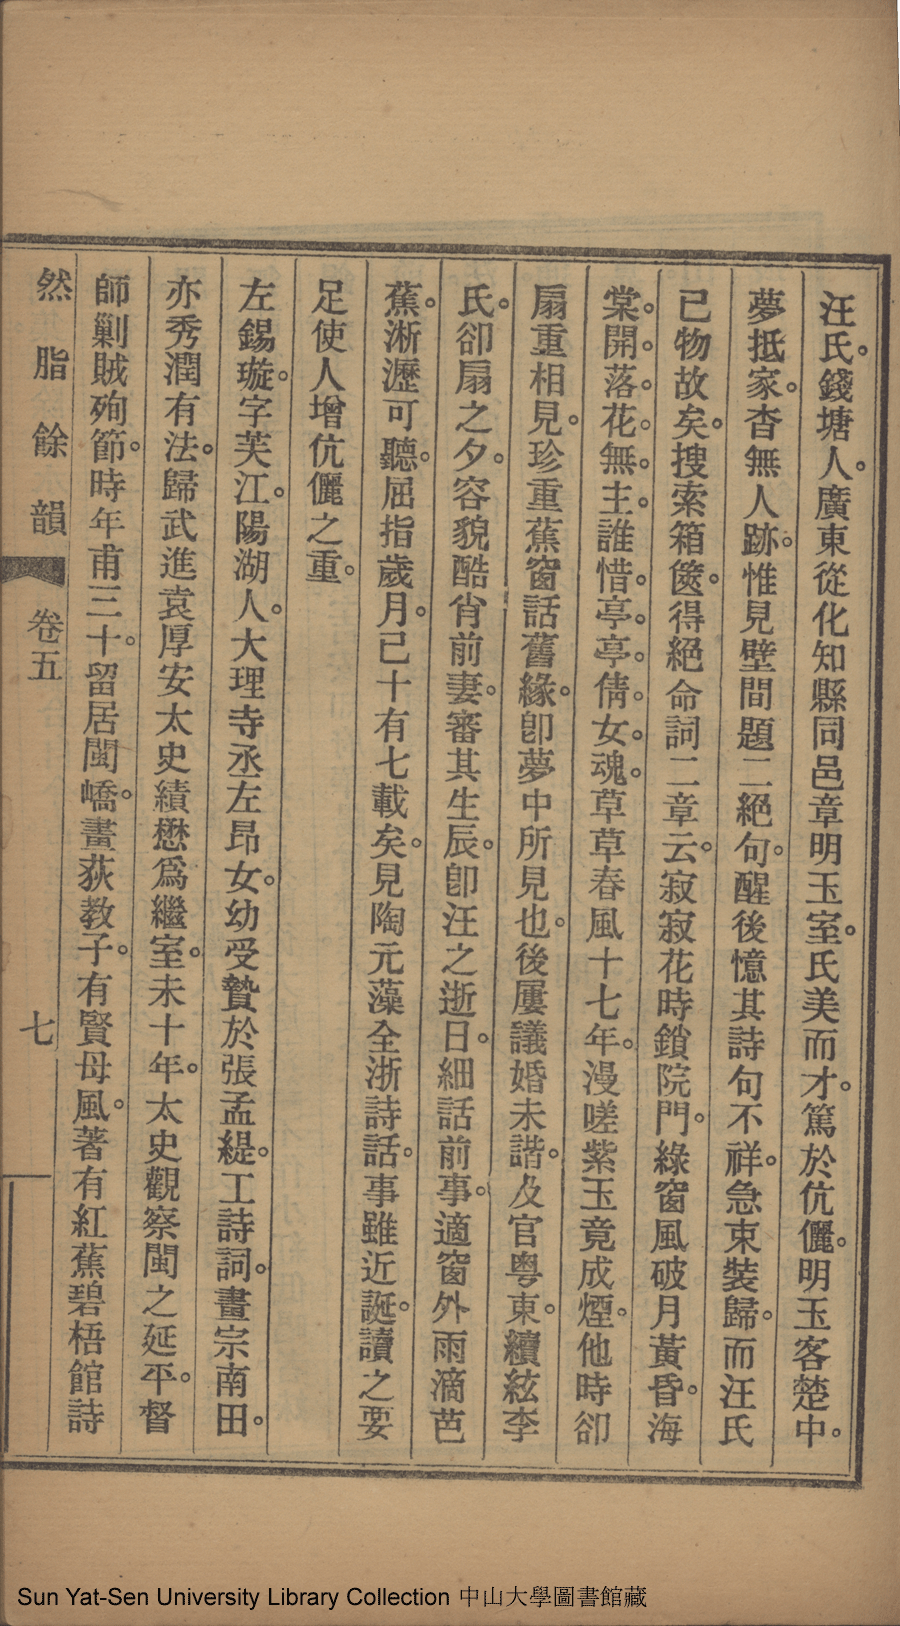 汪氏。錢塘人。廣東從化知縣同邑章明玉室。氏美而才。篤於伉儷。明玉客楚中。
夢抵家。杳無人跡。惟見壁間題二絕句。醒後憶其詩句不祥。急束裝歸。而汪氏
已物故矣。搜索箱篋。得絕命詞二章云。寂寂花時鎖院門。綠窗風破月黃昏。海
棠。開。落。花。無。主。誰惜。亭。亭。倩。女。魂。草草春風十七年。漫嗟紫玉竟成煙。他時卻
扇重相見。珍重蕉窗話舊緣。卽夢中所見也。後屢議婚未諧。及官粵東。續絃李
氏。卻扇之夕。容貌酷肖前妻。審其生辰。卽汪之逝日。細話前事。適窗外雨滴芭
蕉。淅瀝可聽。屈指歲月。已十有七載矣。見陶元藻全浙詩話。事雖近誕。讀之要
足使人增伉儷之重。
左錫璇。字芙江。陽湖人。大理寺丞左昂女。幼受贄於張孟緹。工詩詞。畫宗南田。
亦秀潤有法。歸武進袁厚安太史績懋爲繼室。未十年。太史觀察閩之延平。督
師剿賊殉節。時年甫三十。留居閩嶠。畫荻教子。有賢母風。著有紅蕉碧梧館詩
然脂餘韻 卷五 七
Sun Yat-Sen University Library Collection 中山大學圖書館藏